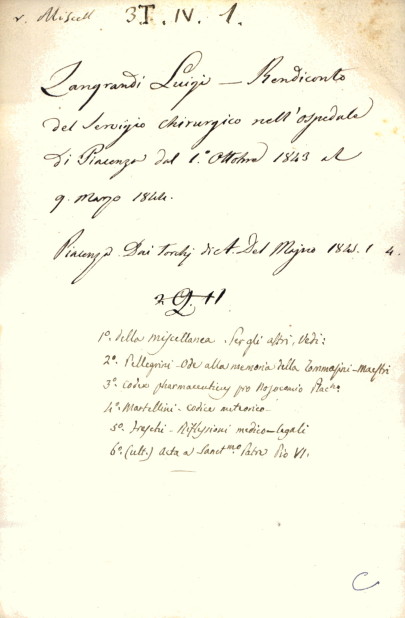 v. Miscell 3T. IV. 1.
Zangrandi Luigi — Rendiconto
del Servigio chirurgico nell'ospedale
di Piacenza dal 1.° Ottobre 1843 al
9. marzo 1844.
Piacenza. Dai torchj di A. Del Majno 1844. 1 4.
1°. della miscellanea. Per gli altri, vedi:
2°. Pellegrini - Ode alla memoria della Tommasini - Maestri
3°. Codex pharmaceuticus pro Nosocomio Plac.no
4°. Martellini - codice metrorico
5°. Freschi - Riflessioni medico-legali
6°. (ult.) Acta a Sanct.mo Patre Pio VI.
C